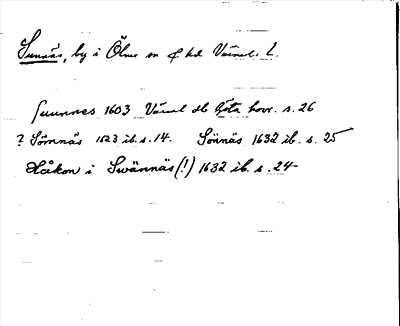 Sunnäs, by i Ölme sn o hd Värml. L.
Suunnes 1603 Värml db Göta hovr. s. 26
? Sömnäs 1623 ib. s. 14. Sönnäs 1632 ib. s. 25
Håkon i Swännäs (!) 1632 ib. s. 24